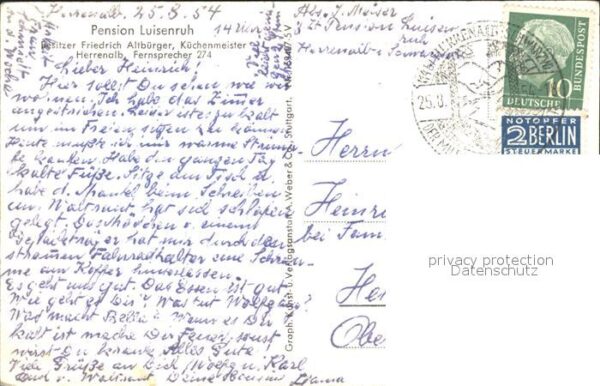 Herrenalb, 25.8.54
Pension Luisenruh
Besitzer Friedrich Altbürger, Küchenmeister
Herrenalb, Fernsprecher 274
Lieber Heinrich!
Hier sollst Du sehen wie wir
wohnen. Ich habe das Zimer
angestrichen. Leider ist es zu kalt
um im Freien sitzen zu können.
Heute mußte ich mir warme Strümp
fe kaufen. Habe den ganzen Tag
kalte Füße. Sitze am Tisch u.
habe d. Mantel beim Schreiben
an. Waltraut hat sich schlafen
gelegt. Das Schößchen v. einem
Gepäckträger hat mir durch den
strammen Fahrradhalter eine Schram
me am Koffer hinterlassen.
Es geht uns gut. Das Essen ist gut.
Wie geht es Dir? Was tut Wolfgang?
Was macht Bella? Wenn es Dir
kalt ist mache Dir Feuer, sonst
wirst Du krank. Alles Gute
Viele Grüße an Dich, Wolfg. u. Karl
und v. Waltraut Deine
Mama
Abs. J. Maiser
Zt. Pension Luisen
ruh
Herrenalb Schwarzw.
Graph. Kunst- u. Verlagsanstalt A. Weber & Co., Stuttgart.
Herrn
Heinr
bei Fam
He
Obe
25.8.
10
DEUTSCHE
BUNDESPOST
NOTOPFER
2 BERLIN
STEUERMARKE
privacy protection
Datenschutz